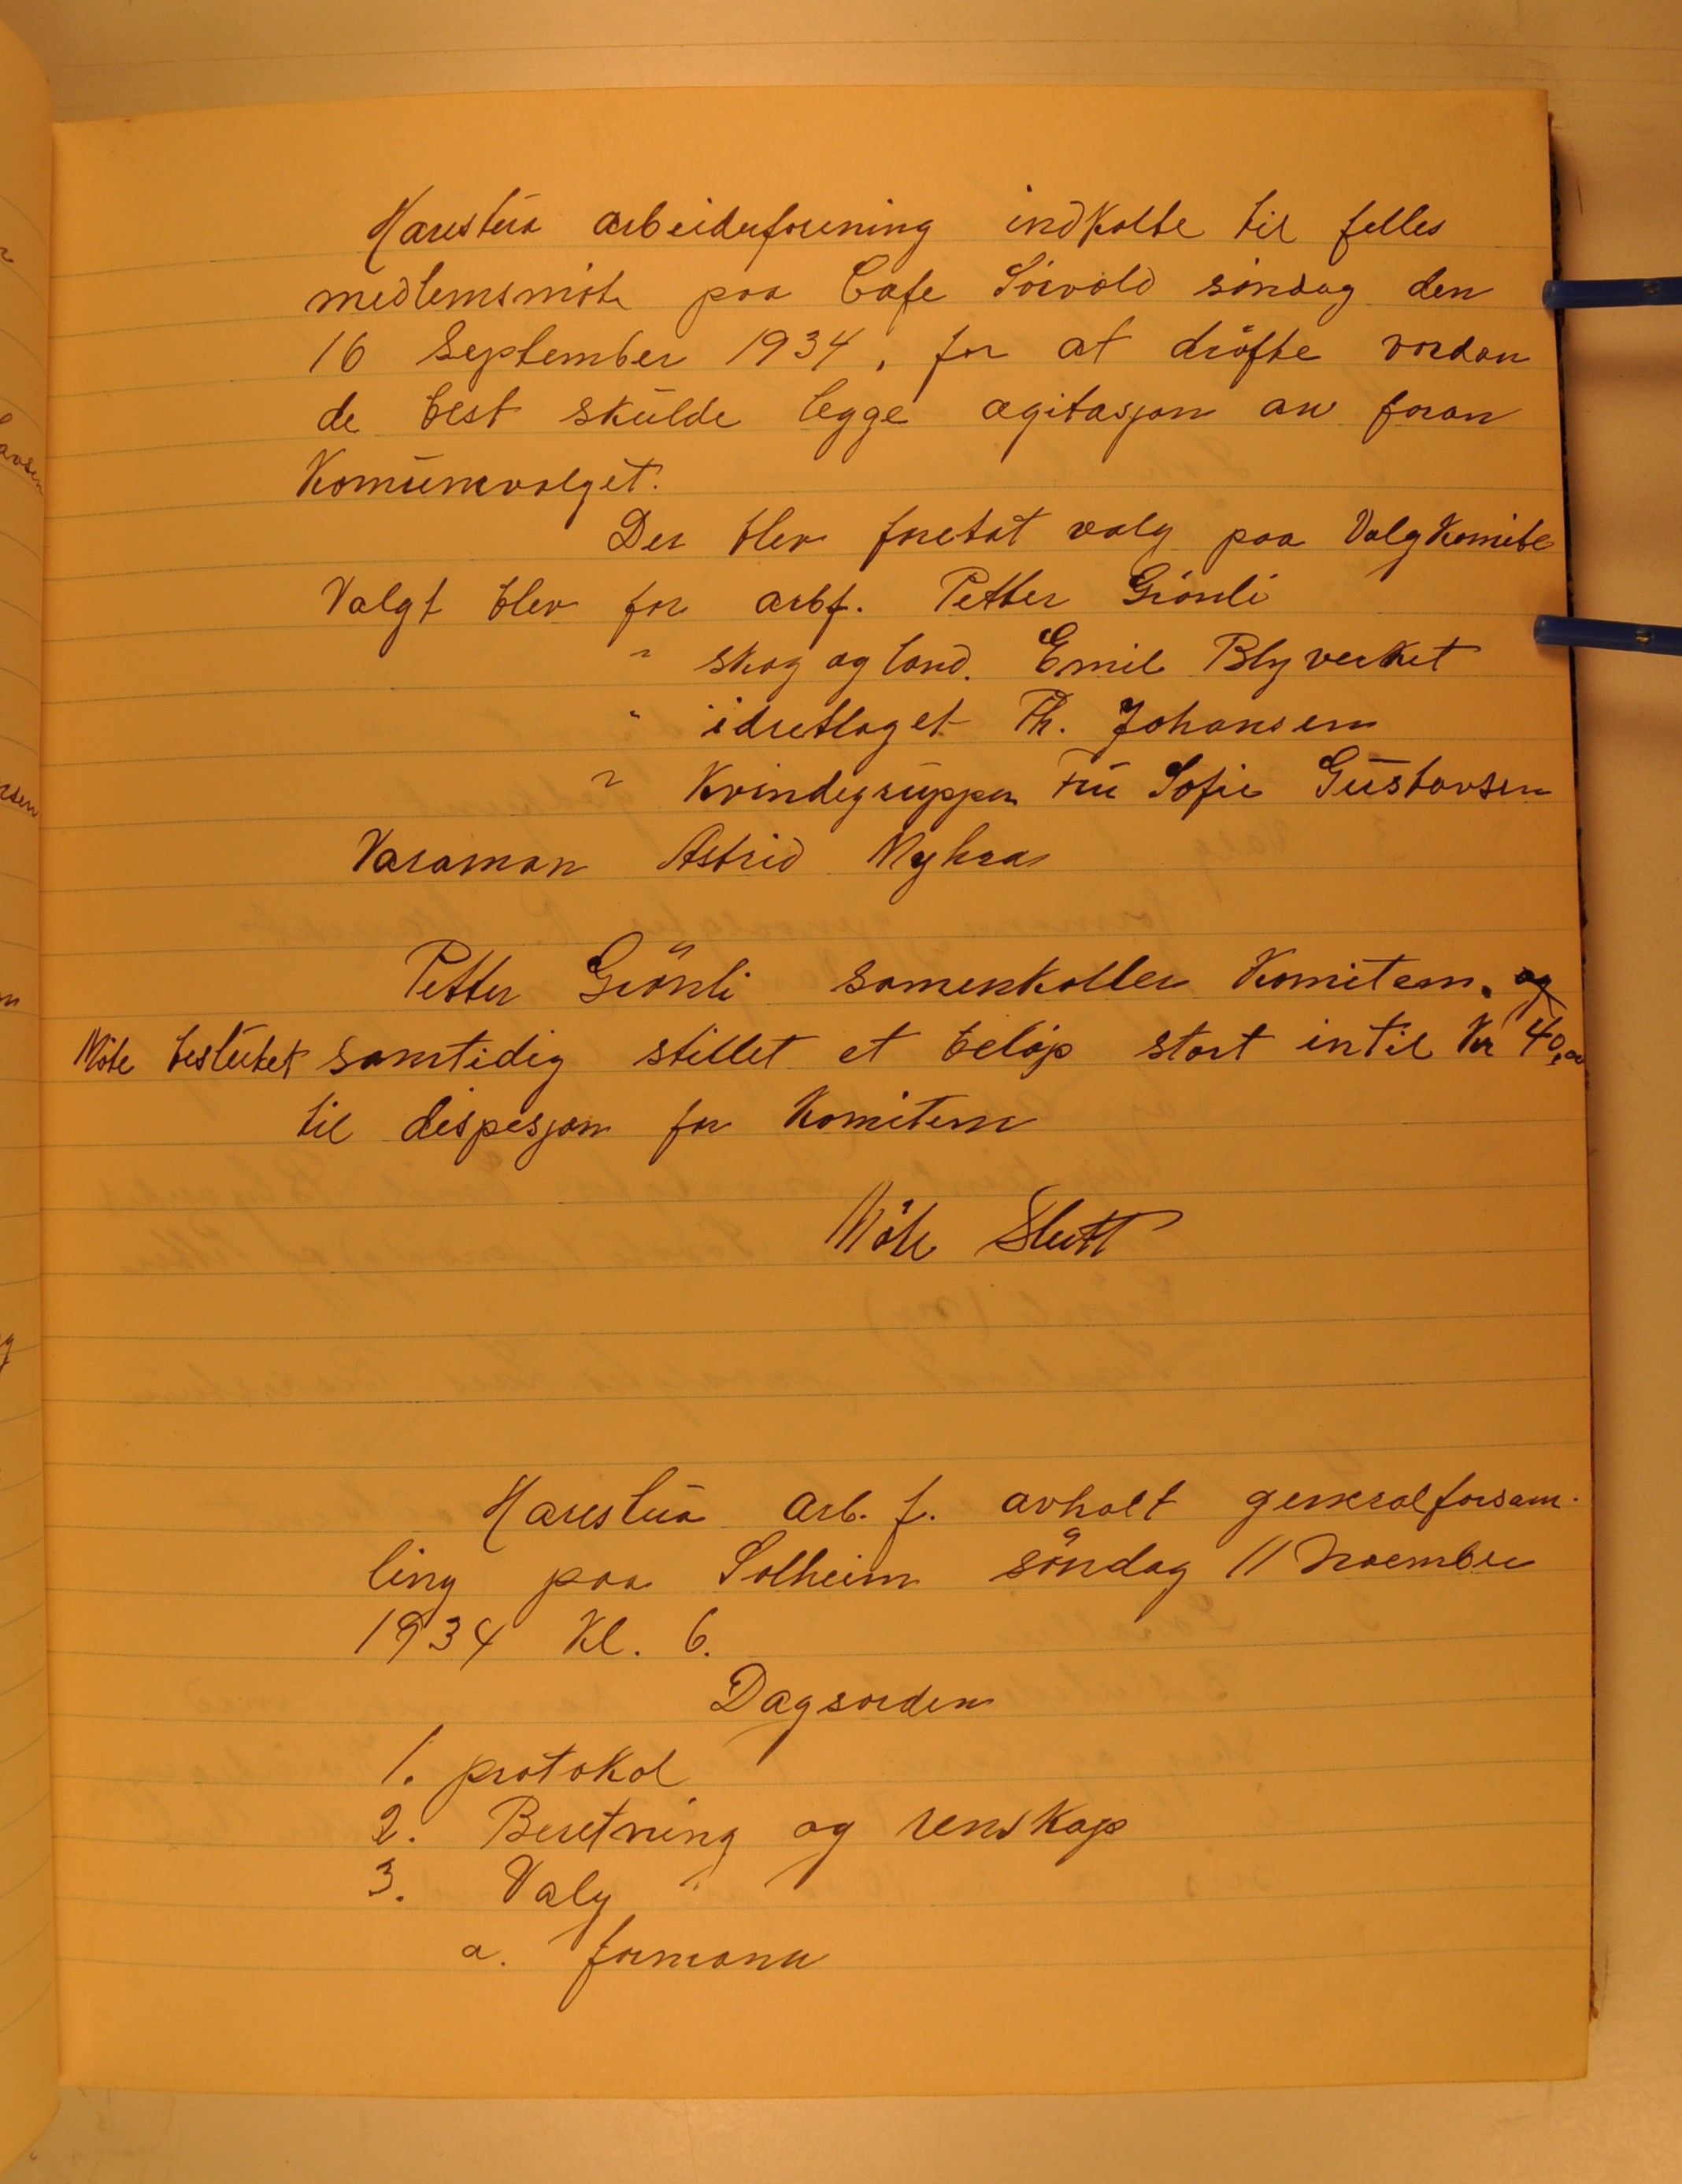 Harestua arbeiderforening indkalte til felles
medlemsmöte paa Cafe Sörvold söndag den
16 September 1934, for at dröfte vordan
de best skulde legge agitasjon an foran
Komunevalget.
Der blev foretat valg paa Valgkomite
Valgt blev for arbf. Petter Grönli
" skog og land. Emil Blyverket
" idretlaget Th. Johansen
" Kvindegruppen Fru Sofie Gustavsen
Varaman Astrid Myhra
Petter Grönli samenkaller Komiteen. og
Möte beslutet samtidig stillet et belöp stort intil Kr 40,00
til dispesjon for Komiteen
Möte Slutt
Harestua arb. f. avholt generalforsam-
ling paa Solheim söndag 11 November
1934 Kl. 6.
Dagsorden
1. protokol
2. Beretning og renskap
3. Valg
a. formann